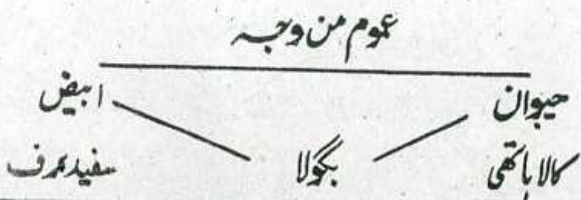 عموم من وجہ
حیوان ابیض
کالا ہاتھی بگولا سفید برف